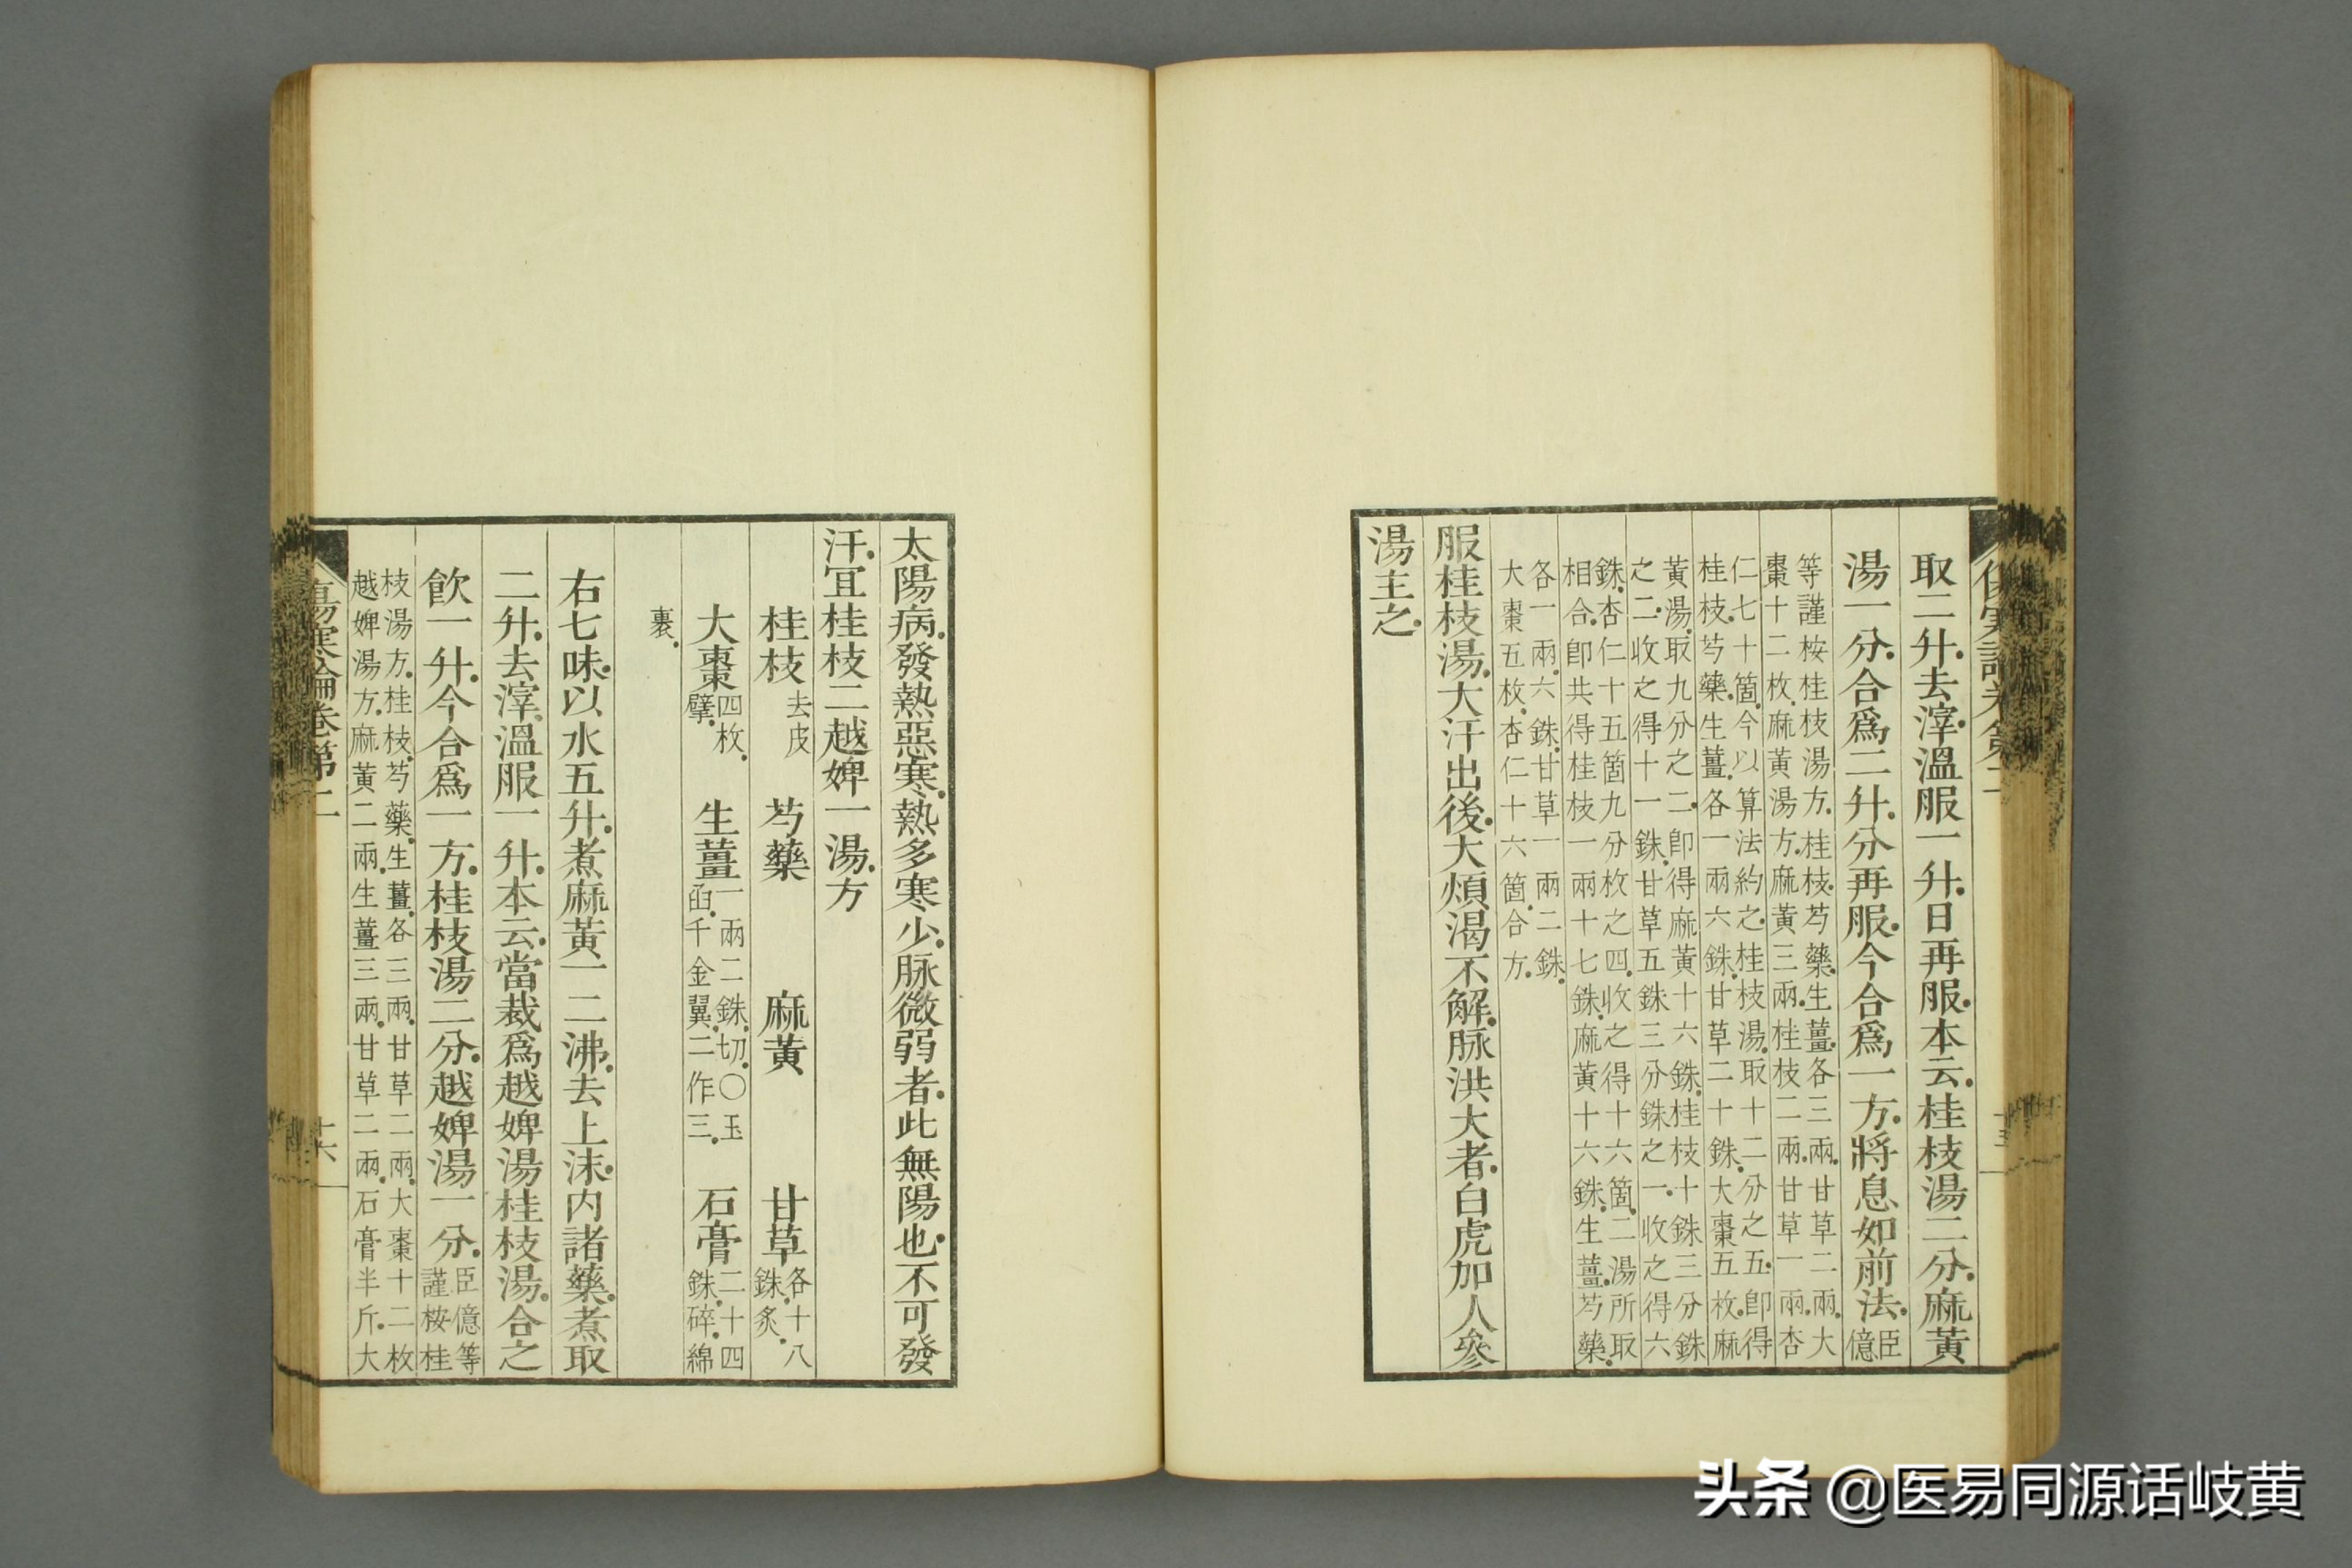 傷寒論卷第二
取二升.去滓.溫服一升.日再服.本云.桂枝湯二分.麻黃
湯一分.合爲二升.分再服.今合爲一方.將息如前法.臣億
等謹桉桂枝湯方.桂枝.芍藥.生薑.各三兩.甘草二兩.大
棗十二枚.麻黃湯方.麻黃三兩.桂枝二兩.甘草一兩.杏
仁七十箇.今以算法約之.桂枝湯.取十二分之五.即得
桂枝.芍藥.生薑.各一兩六銖.甘草二十銖.大棗五枚.麻
黃湯.取九分之二.即得麻黃十六銖.桂枝十銖三分銖
之二.收之得十一銖.甘草五銖三分銖之一.收之得六
銖.杏仁十五箇九分枚之四.收之得十六箇.二湯所取
相合.即共得桂枝一兩十七銖.麻黃十六銖.生薑.芍藥.
各一兩六銖.甘草一兩二銖.
大棗五枚.杏仁十六箇.合方.
服桂枝湯.大汗出後.大煩渴不解.脉洪大者.白虎加人參
湯主之.
太陽病.發熱惡寒.熱多寒少.脉微弱者.此無陽也.不可發
汗.宜桂枝二越婢一湯.方
桂枝去皮 芍藥 麻黃 甘草各十八銖.炙
大棗四枚.擘. 生薑一兩二銖.切.○玉函.千金翼.二作三. 石膏二十四銖.碎.綿
裹.
右七味.以水五升.煮麻黃一二沸.去上沫.内諸藥.煮取
二升.去滓.溫服一升.本云.當裁爲越婢湯桂枝湯.合之
飲一升.今合爲一方.桂枝湯二分.越婢湯一分.臣億等謹桉桂
枝湯方.桂枝.芍藥.生薑.各三兩.甘草二兩.大棗十二枚
越婢湯方.麻黃二兩.生薑三兩.甘草二兩.石膏半斤.大
傷寒論卷第二 十六
头条 @医易同源话岐黄